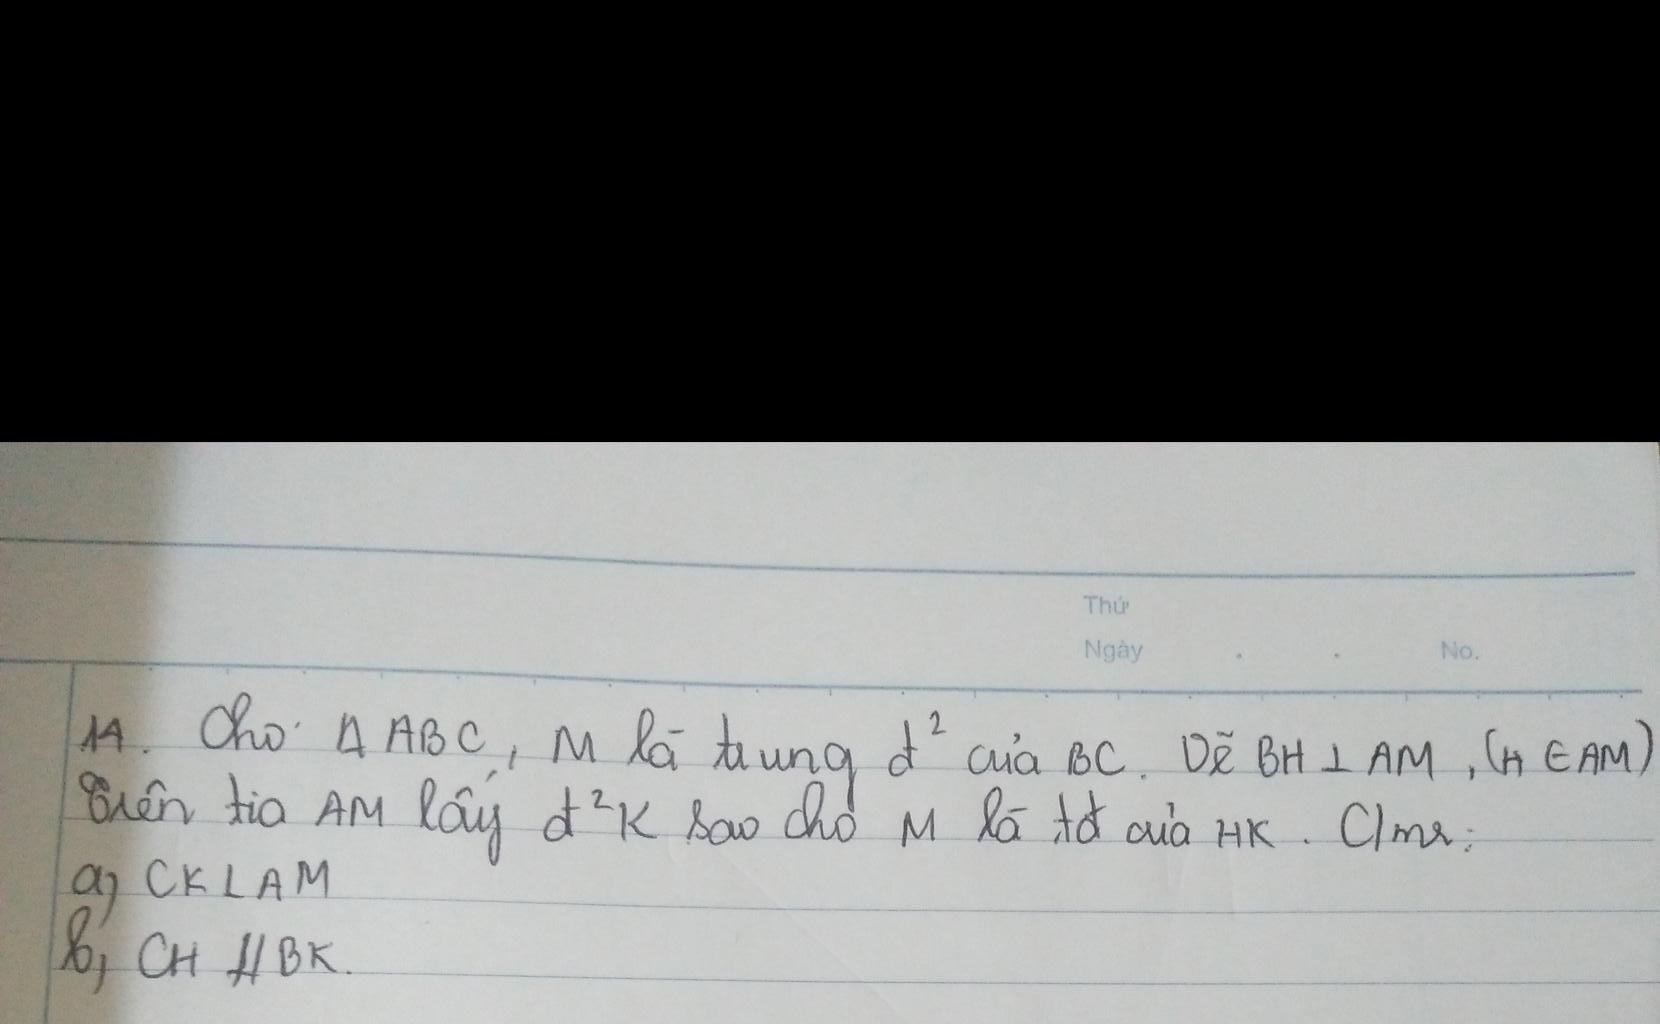 Thứ
Ngày . . No.
14. Cho Δ ABC, M là trung đ² của BC. Vẽ BH ⊥ AM, (H ∈ AM)
Trên tia AM lấy đ² K sao cho M là tđ của HK. C/mr:
a, CK ⊥ AM
b, CH // BK.